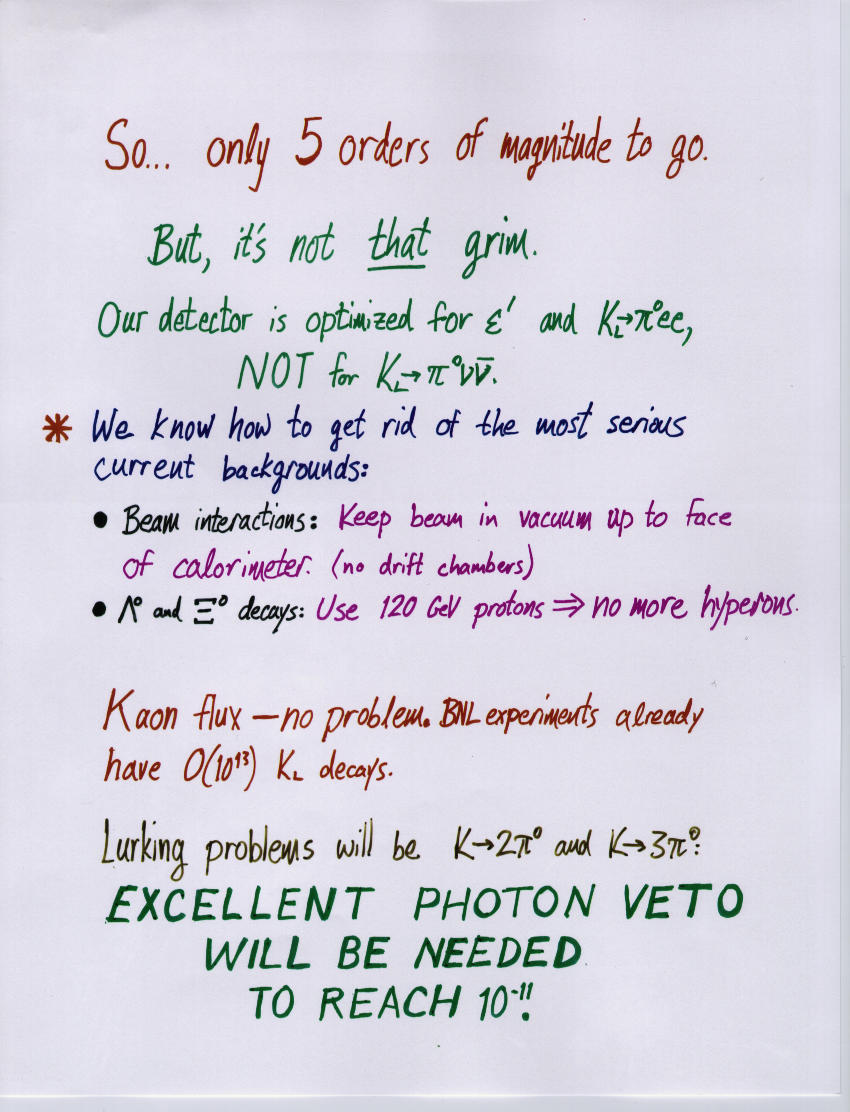 So... only 5 orders of magnitude to go.
But, it's not that grim.
Our detector is optimized for ε′ and K_L→π⁰ee,
NOT for K_L→π⁰νν̄.
* We know how to get rid of the most serious
current backgrounds:
● Beam interactions: Keep beam in vacuum up to face
of calorimeter. (no drift chambers)
● Λ⁰ and Ξ⁰ decays: Use 120 GeV protons ⇒ no more hyperons.
Kaon flux — no problem. BNL experiments already
have O(10¹³) K_L decays.
Lurking problems will be K→2π⁰ and K→3π⁰:
EXCELLENT PHOTON VETO
WILL BE NEEDED
TO REACH 10⁻¹¹!